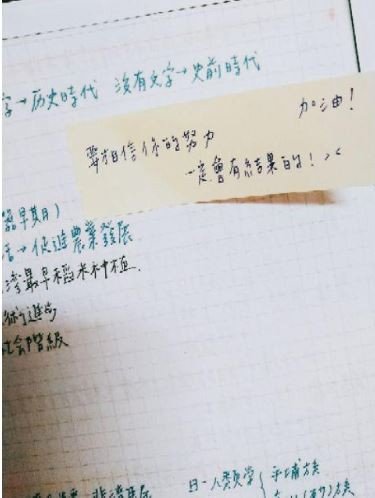 字→历史時代 沒有文字→史前時代
加油!
要相信你的努力
一定會有結果的! >.<
器早期)
活→促進農業發展
灣最早稻米种植.
術進步
社會階級
人類學 { 平埔族
族